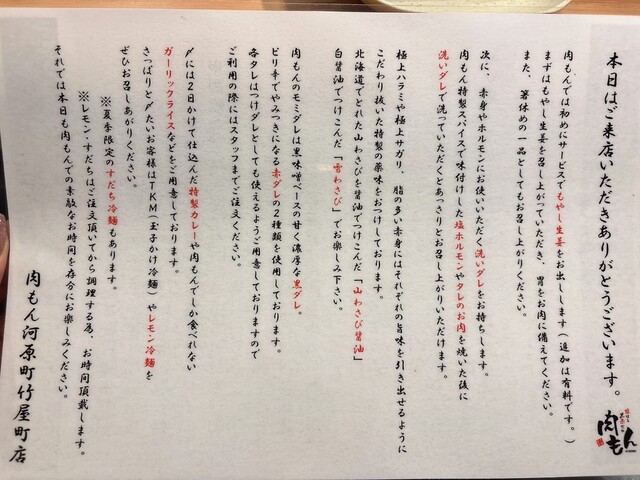 本日はご来店いただきありがとうございます。
肉もんでは初めにサービスでもやし生姜をお出しします(追加は有料です。)
まずはもやし生姜を召し上がっていただき、胃をお肉に備えてください。
また、箸休めの一品としてもお召し上がりください。
次に、赤身やホルモンにお使いいただく洗いダレをお持ちします。
肉もん特製スパイスで味付けした塩ホルモンやタレのお肉を焼いた後に
洗いダレで洗っていただくとあっさりとお召し上がりいただけます。
極上ハラミや極上サガリ、脂の多い赤身にはそれぞれの旨味を引き出せるように
こだわり抜いた特製の薬味をおつけしております。
北海道でとれた山わさびを醤油でつけこんだ「山わさび醤油」
白醤油でつけこんだ「雪わさび」でお楽しみ下さい。
肉もんのモミダレは黒味噌ベースの甘く濃厚な黒ダレ。
ピリ辛でやみつきになる赤ダレの2種類を使用しております。
各タレはつけダレとしても使えるようご用意しておりますので
ご利用の際にはスタッフまでご注文ください。
〆には2日かけて仕込んだ特製カレーや肉もんでしか食べれない
ガーリックライスなどをご用意しております。
さっぱりと〆たいお客様はTKM(玉子かけ冷麺)やレモン冷麺を
ぜひお召しあがりください。
※夏季限定のすだち冷麺もあります。
※レモン・すだちはご注文頂いてから調理する為、お時間頂戴します。
それでは本日も肉もんでの素敵なお時間を存分にお楽しみください。
肉もん河原町竹屋町店
肉もん